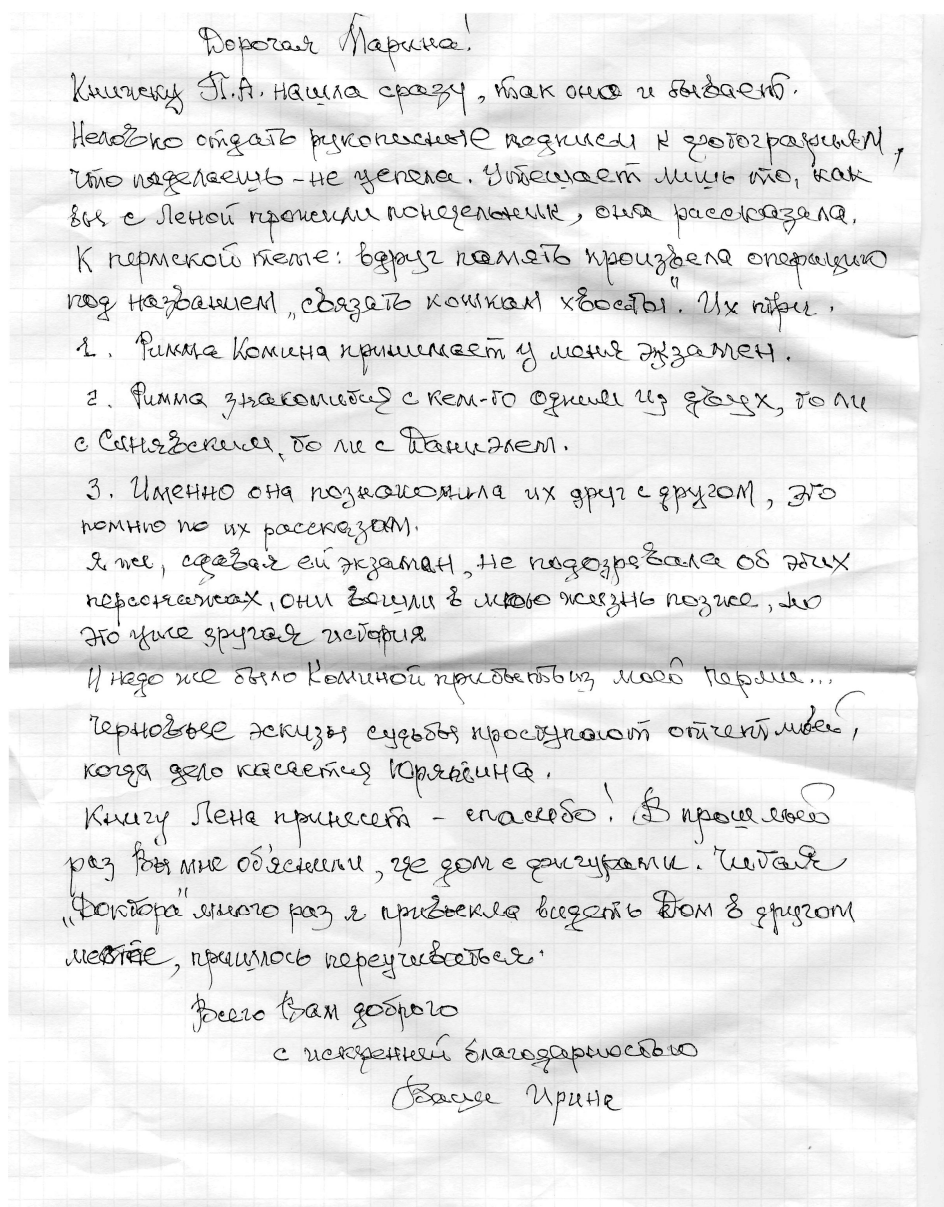 Дорогая Марина!
Книжку П.А. нашла сразу, так оно и бывает.
Неловко отдать рукописные подписи к фотографиям,
что поделаешь - не успела. Утешает лишь то, как
вы с Леной прожили понедельник, она рассказала.
К пермской теме: вдруг память произвела операцию
под названием „связать кошкам хвосты". Их три.
1. Римма Комина принимает у меня экзамен.
2. Римма знакомится с кем-то одним из двух, то ли
с Синявским, то ли с Даниэлем.
3. Именно она познакомила их друг с другом, это
помню по их рассказам.
Я же, сдавая ей экзамен, не подозревала об этих
персонажах, они вошли в мою жизнь позже, но
это уже другая история
И надо же было Коминой прибыть из моей Перми...
Черновые эскизы судьбы проступают отчетливей,
когда дело касается Юрятина.
Книгу Лена принесет - спасибо! В прошлый
раз Вы мне объяснили, где дом с фигурами. Читая
„Доктора" много раз я привыкла видеть Дом в другом
месте, пришлось переучиваться.
Всего Вам доброго
с искренней благодарностью
Ваша Ирина